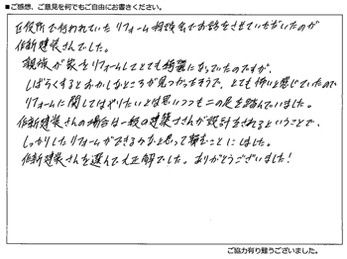 ■ご感想、ご意見を何でもご自由にお書きください。
区役所で行われていたリフォーム相談会でお話をさせていただいたのが
作新建装さんでした。
親族が家をリフォームしてとても綺麗になっていたのですが、
しばらくするとおかしなところが見つかったそうで、とても怖いと感じていたので
リフォームに関してはやりたいとは思いつつも二の足を踏んでいました。
作新建装さんの場合は一級の建築士さんが設計をされるということで、
しっかりしたリフォームができるかなと思って頼むことにしました。
作新建装さんを選んで大正解でした。ありがとうございました!
ご協力有り難うございました。